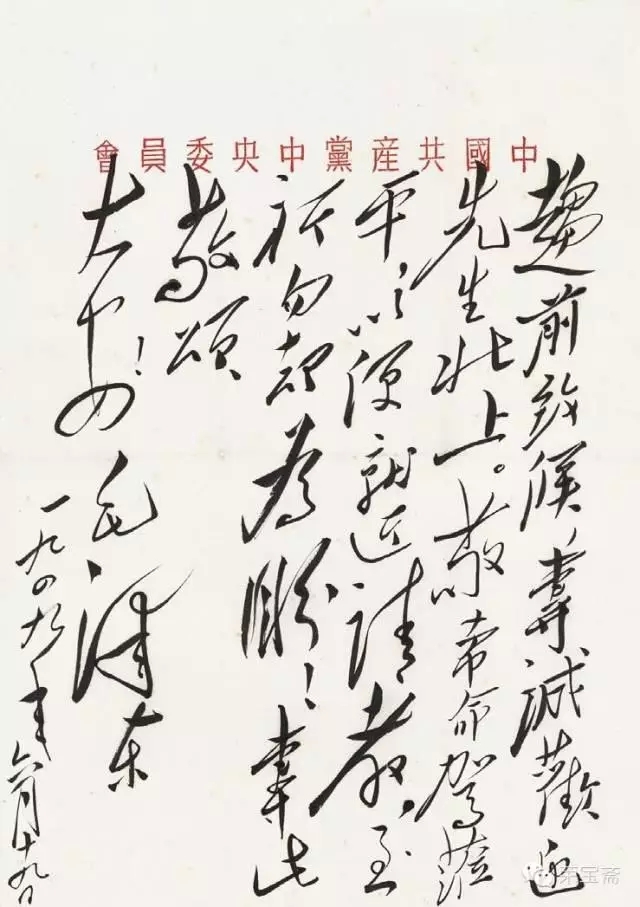 中國共産黨中央委員會
趨前致候，專誠歡迎
先生北上。敬希命駕蒞
平，以便就近請教，至
祈勿却為盼！專此
敬頌
大安！
毛澤东
一九四九年六月十九日
荣宝斋